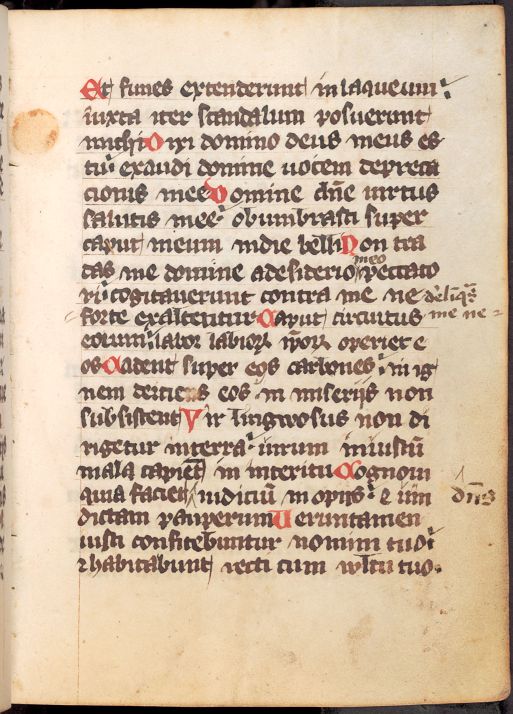 Et funes extenderunt in laqueum
iuxta iter scandalum posuerunt
michi Dixi domino deus meus es
tu exaudi domine uocem depreca
cionis mee Domine dn̄e uirtus
salutis mee obumbrasti super
caput meum in die belli Non tra
das me domine a desiderio meo peccato
ri cogitauerunt contra me ne derelīqs
forte exaltentur Caput circuitus me ne
eorum labor labioꝝ ip̄oꝝ operiet e
os Cadent super eos carbones in ig
nem deicies eos in miserijs non
subsistent Vir lingwosus non di
rigetur in terra uirum iniustū
mala capient in interitu Cognoui
quia faciet dn̄s iudiciū inopis ⁊ uin
dictam pauperum Ueruntamen
iusti confitebuntur nomini tuo
⁊ habitabunt recti cum wltu tuo.